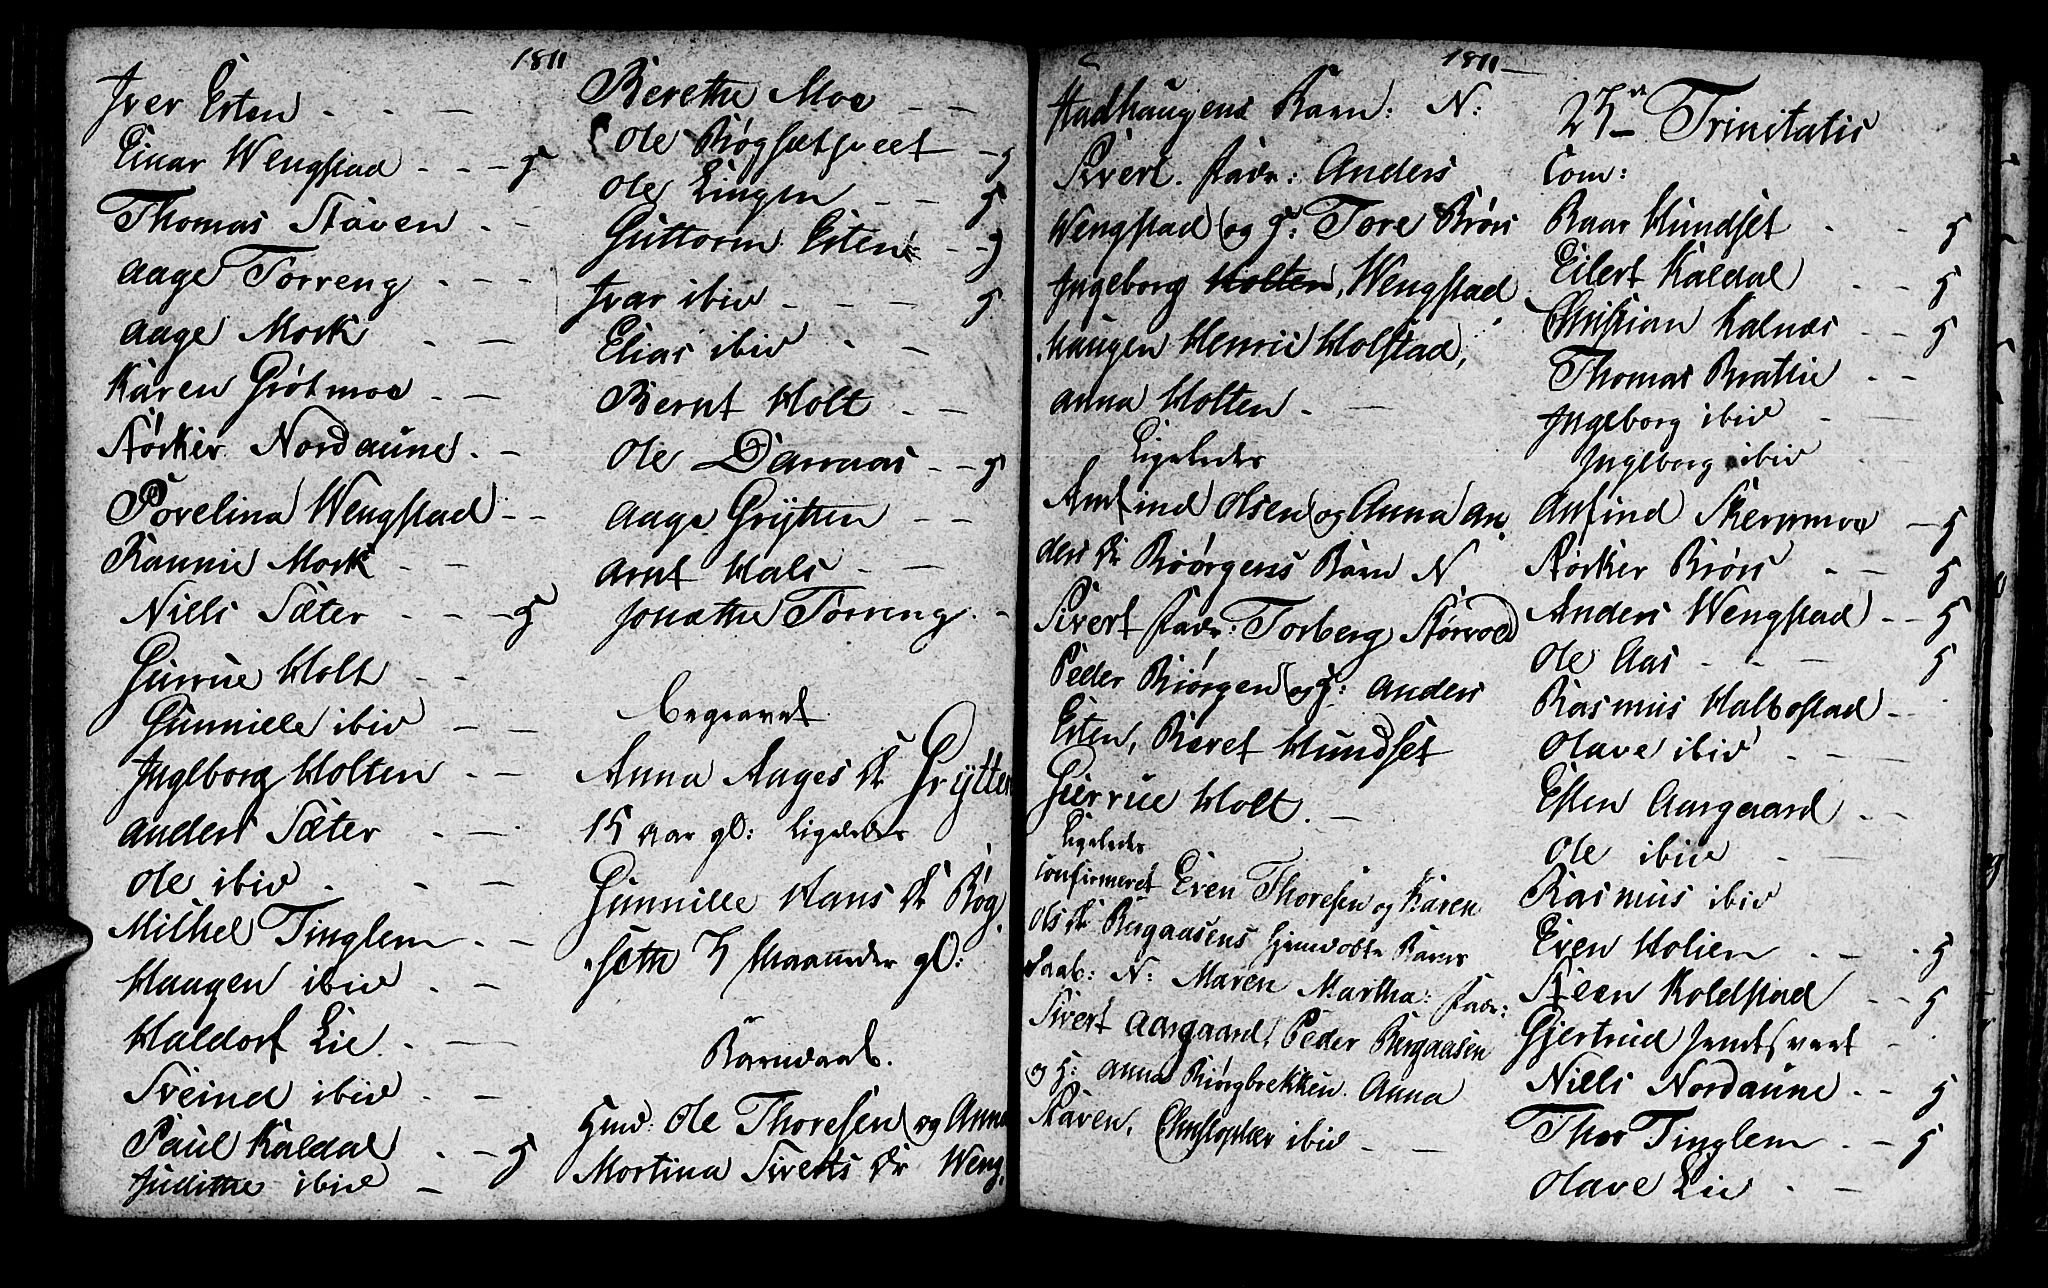 1811
Iver Esten - - -
Einar Wengstad - - - 5
Thomas Støven - -
Aage Torreng - - -
Aage Mork - -
Karen Grøtmoe - -
Størker Nordaune - -
Povelina Wengstad - -
Rannie Mork - -
Niels Sæter - - - 5
Gurrue Holt - -
Gunnille ibid - -
Ingeborg Holten - -
Anders Sæter - -
Ole ibid - - -
Mikkel Tinglem - -
Haagen ibid - -
Haldorf Lie - -
Sveind ibid - -
Paul Kaldal - - 5
Judithe ibid -
Berethe Moe - -
Ole Røgsæt - 5
Ole Lingen - - 5
Guttorm Esten - - 5
Ivar ibid - - - 5
Elias ibid - -
Bernt Holt - -
Ole Darraas - - 5
Aage Grÿtten - -
Arnt Hals - -
Jonethe Torreng - -
Begravet
Anna Aages Dr Grÿtten
15 Aar gl: Ligeledes
Gunnille Hans Dr Røg
sæth 3 Maaneder gl:
Barnedaab.
Gmd: Ole Thoresen og Anna
Mortina Siverts Dr Weng
1811
stadhaugens Barn: N:
Sivert. Fadr: Anders
Wengstad og g: Tore Brøs
Ingeborg Holten, Wengstad
haugen Henric Holstad,
Anna Holten. -
Ligeledes
Amfind Olsen og Anna An
ders Dr Biørgens Barn N
Sivert Fadr: Torberg Størvold
Peder Biørgen og g: Anders
Esten, Beret Hundset
Gurrue Holt. -
Ligeledes
Confirmeret Even Thoresen og Karen
Ols Dr Bergaasens hjemdøbte Barns
Daab: N: Maren Martha: Fadr:
Sivert Aargaard, Peder Bergaasen
og g: Anna Biørgbrekken. Anna
Støven, Christopher ibid - -
23de Trinitatis
Com:
Baar Hundset - - 5
Eilert Kaldal - - 5
Christian Kalnæs - - 5
Thomas Brattie - -
Ingeborg ibid - -
Ingeborg ibid -
Anfind Skerpmoe - 5
Størker Brøs - - 5
Anders Wengstad - - 5
Ole Aas - - - 5
Rasmus Halbostad - -
Olave ibid - -
Esten Aargaard - -
Ole ibid - -
Rasmus ibid
Even Holien - - - 5
Steen Koldstad - - 5
Gjertrud -
Niels Nordaune - - 5
Thor Tinglem - - 5
Olave Lie - -